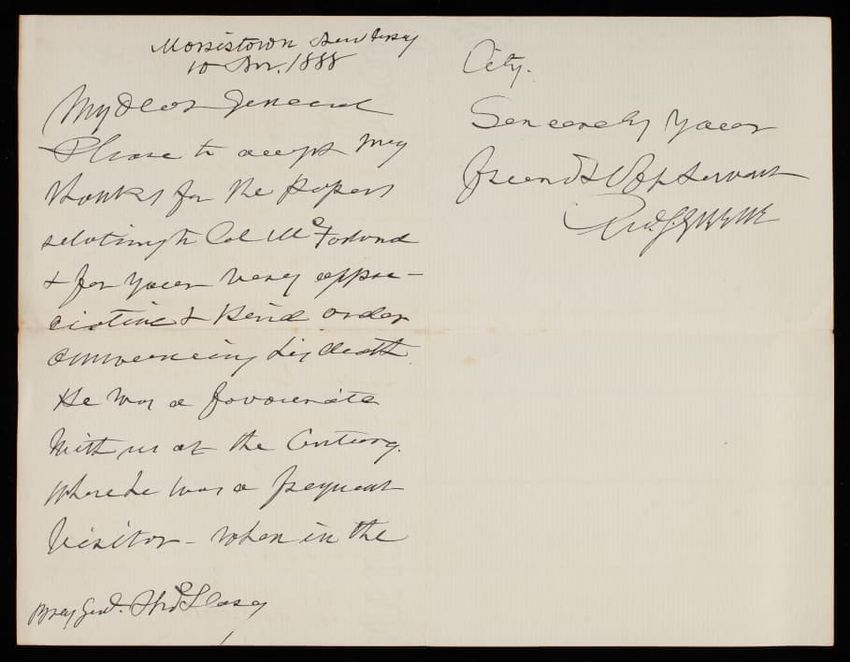 Morristown New Jersey
10 Nov. 1888
My dear General
Please to accept my
thanks for the papers
relating to Col McFarland
& for your very appre-
ciative & kind order
announcing his death.
He was a favourite
with us at the Century.
Where he was a frequent
Visitor - when in the
Brig Genl. Thos L Casey
City.
Sincerely your
friend & Obt Servant